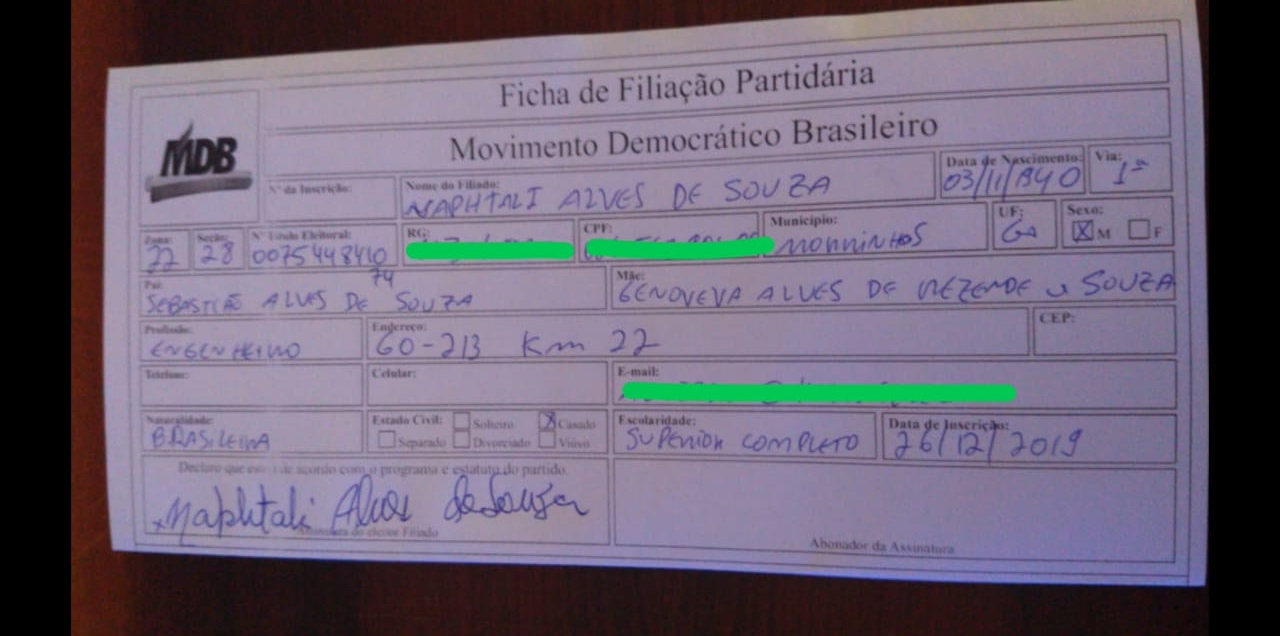 Ficha de Filiação Partidária
MDB
Movimento Democrático Brasileiro
Nº da Inscrição:
Nome do Filiado:
NAPHTALI ALVES DE SOUZA
Data de Nascimento:
03/11/1940
Via:
1ª
Zona:
22
Seção:
28
Nº Título Eleitoral:
0075448410
74
RG:
CPF:
Município:
MORRINHOS
UF:
GO
Sexo:
X M F
Pai:
SEBASTIÃO ALVES DE SOUZA
Mãe:
GENOVEVA ALVES DE REZENDE SOUZA
Profissão:
ENGENHEIRO
Endereço:
GO-213 Km 22
CEP:
Telefone:
Celular:
E-mail:
Naturalidade:
BRASILEIRA
Estado Civil: Solteiro X Casado
Separado Divorciado Viúvo
Escolaridade:
SUPERIOR COMPLETO
Data de Inscrição:
26/12/2019
Declaro que estou de acordo com o programa e estatuto do partido.
x Naphtali Alves de Souza
do eleitor Filiado
Abonador da Assinatura